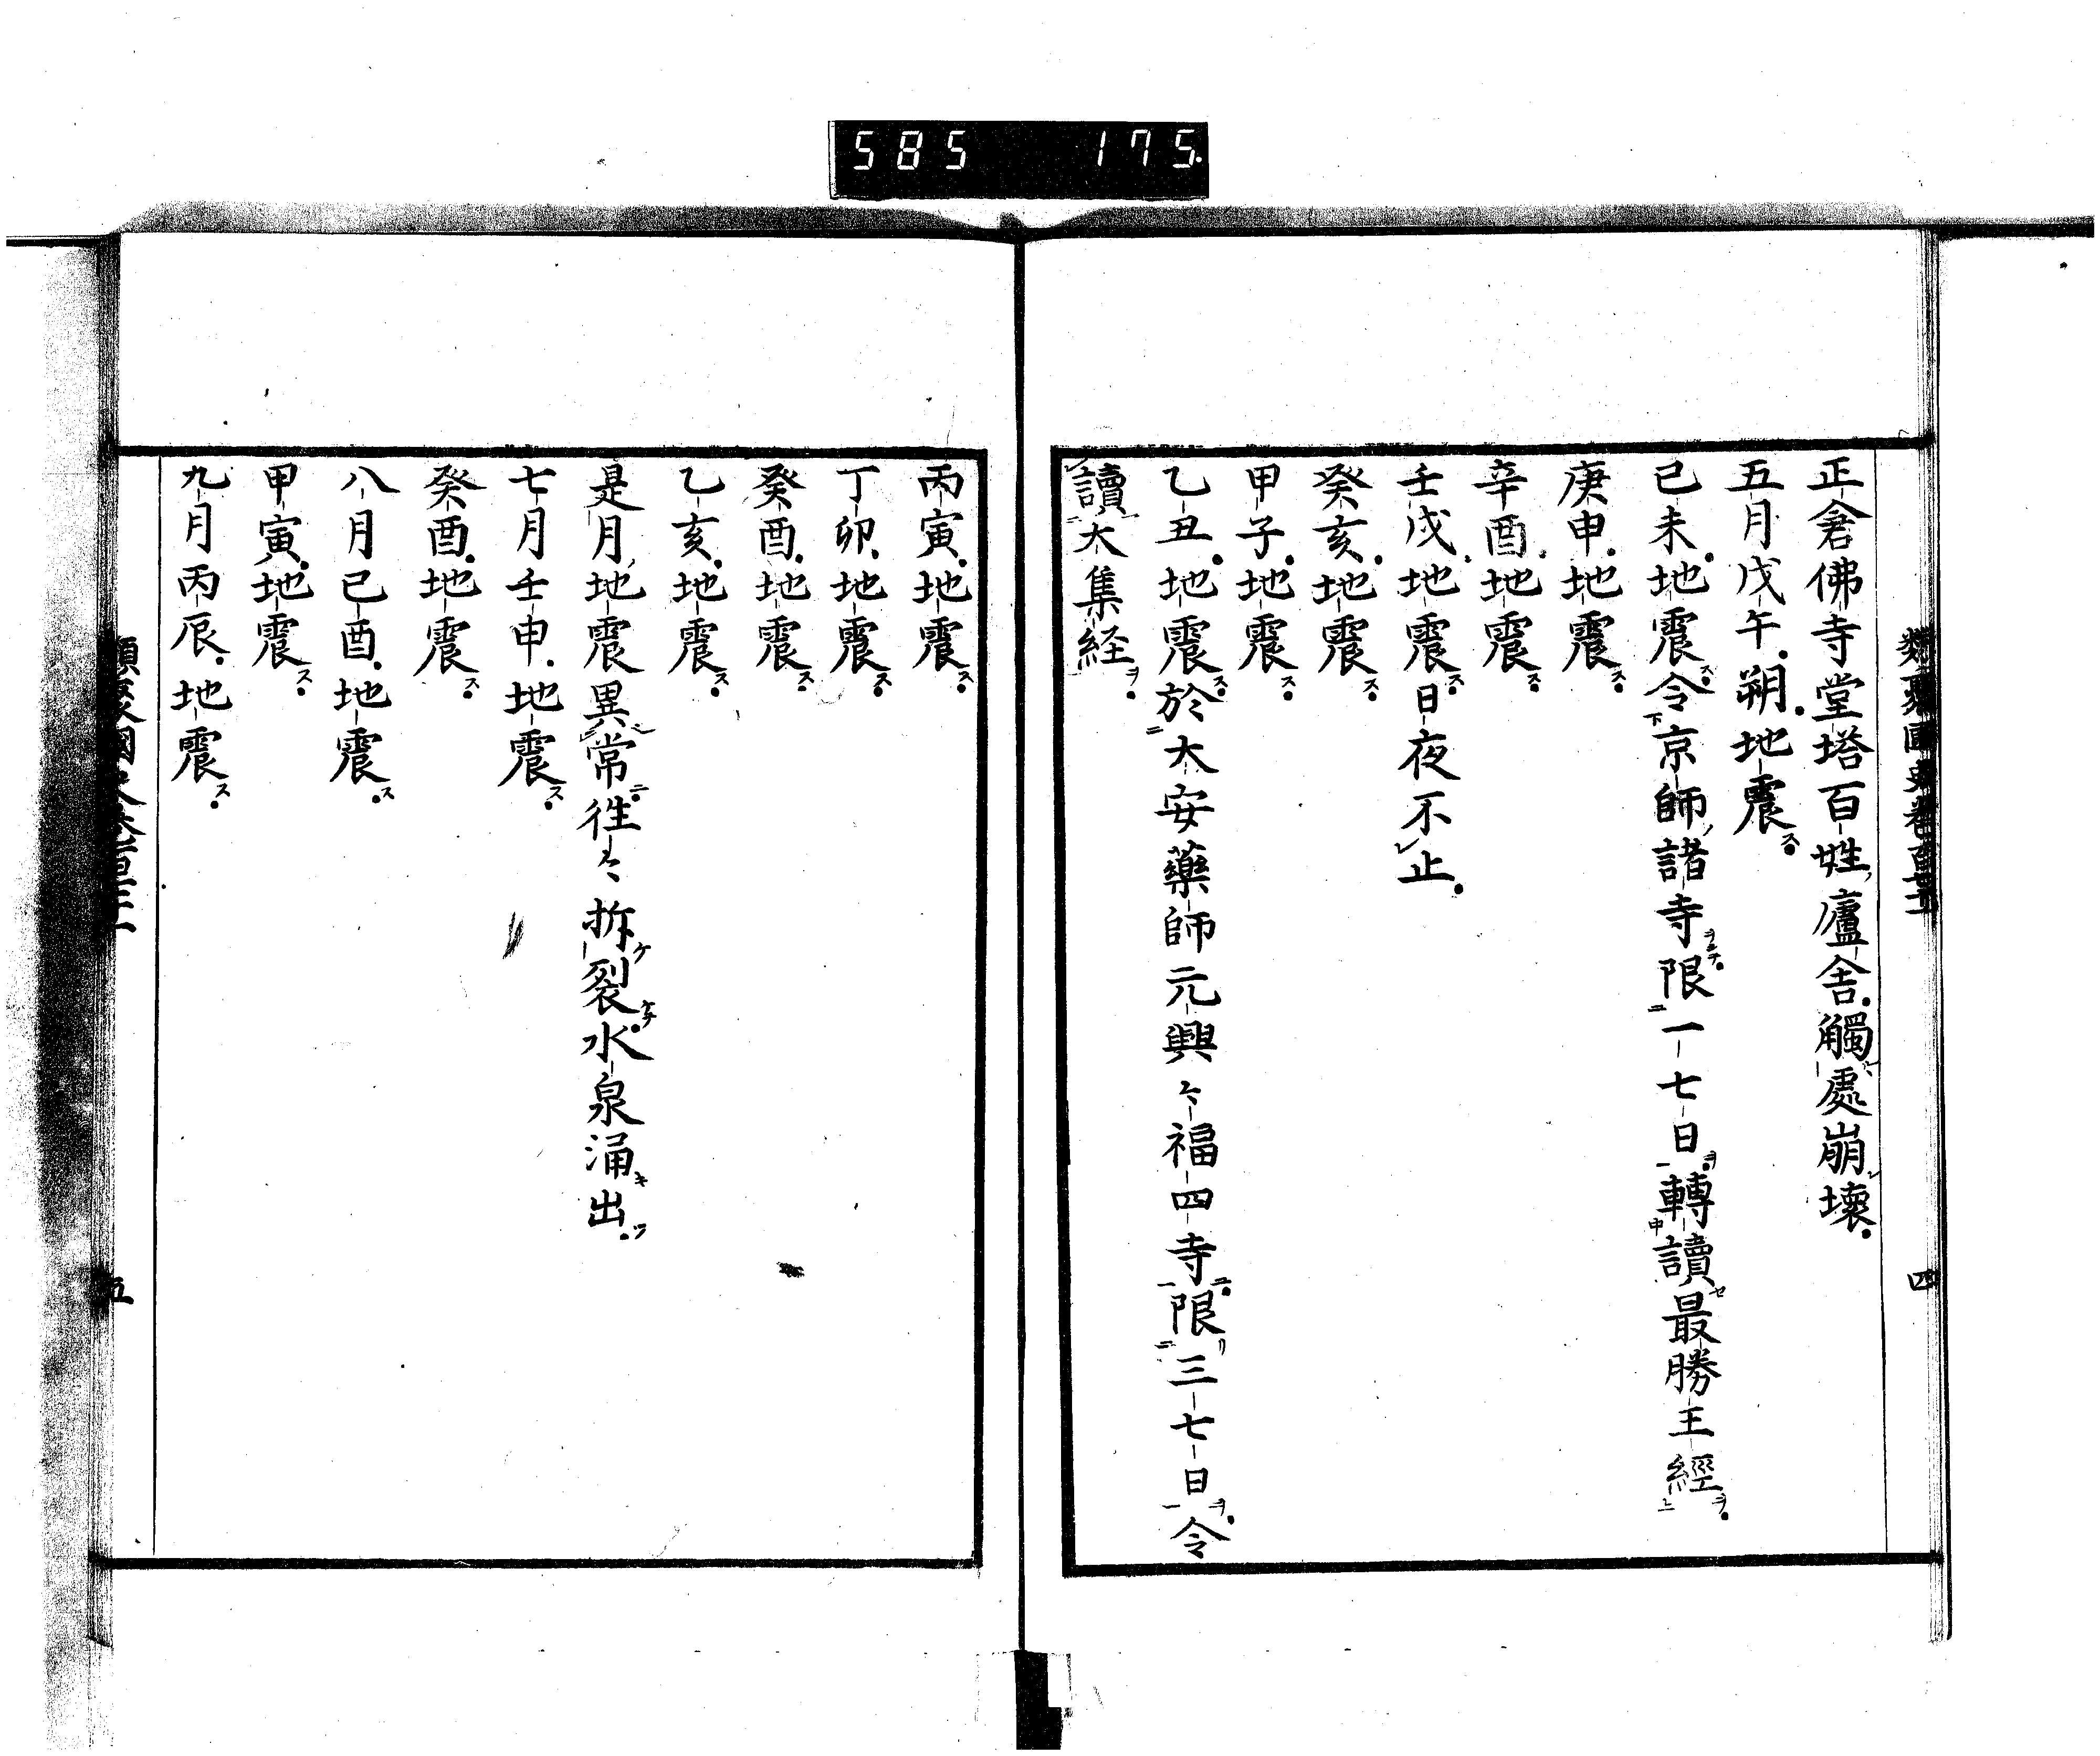 585 175
類聚國史卷百七十一
四
正倉佛寺堂塔百姓廬舎觸處崩壞
五月戊午朔地震
己未地震令京師諸寺限一七日轉讀最勝王經
庚申地震
辛酉地震
壬戌地震日夜不止
癸亥地震
甲子地震
乙丑地震於大安藥師元興々福四寺限三七日令
讀大集経
丙寅地震
丁卯地震
癸酉地震
乙亥地震
是月地震異常徃々拆裂水泉涌出
七月壬申地震
癸酉地震
八月己酉地震
甲寅地震
九月丙辰地震
類聚國史卷百七十一
五